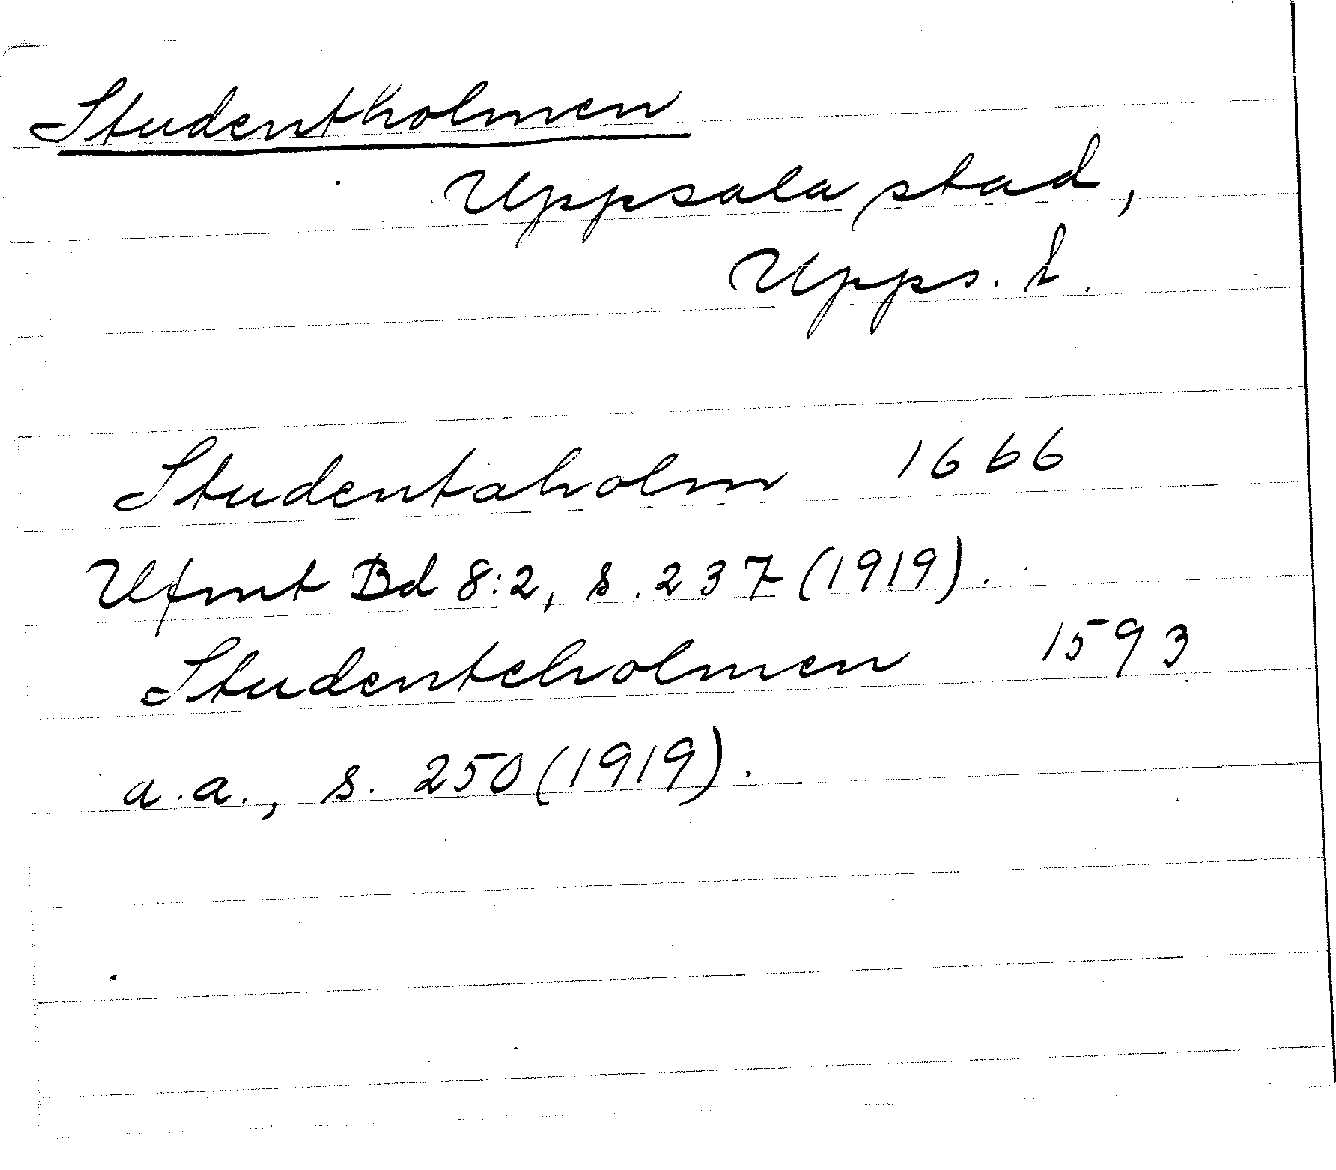 Studentholmen
Uppsala stad,
Upps. l.
Studentaholm 1666
Ufmt Bd 8:2, s. 237 (1919).
Studenteholmen 1593
a.a., s. 250 (1919).